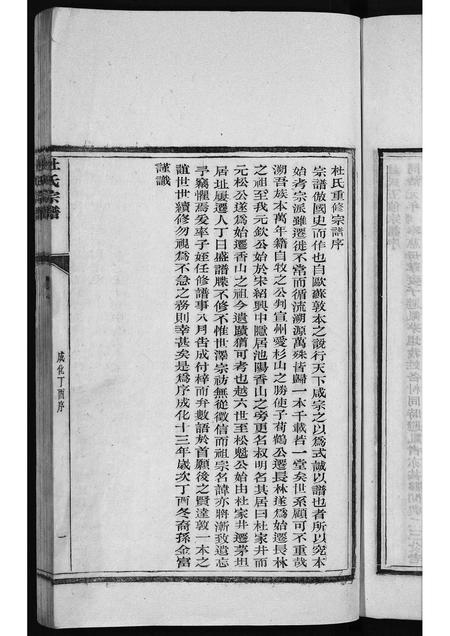 杜氏重修宗譜序
宗譜倣國史而作也自歐蘇敦本之說行天下咸宗之以為式誠以譜也者所以究本
始考宗派雖遷徙不常而循流溯源萬殊皆歸一本千載若一堂矣世系顧可不重哉
溯吾族本萬年籍自牧之公判宣州愛杉山之勝使子荀鶴公遷長林遂為始遷長林
之祖至我元欽公始於宋紹興中隱居池陽香山之旁更名叔明名其居曰杜家井而
元松公遂為始遷香山之祖今遺蹟猶可考也越六世至松魁公始由杜家井遷茅坦
居址屢遷人丁日盛譜牒不修不惟世澤宗祊無從徵信而祖宗名諱亦將漸致遺忘
予竊懼焉爰率子姪任修譜事八月告成付梓而弁數語於首願後之賢達敦一本之
誼世世續修勿視為不急之務則幸甚矣是為序成化十三年歲次丁酉冬裔孫金富
謹識
杜氏宗譜
成化丁酉序
一